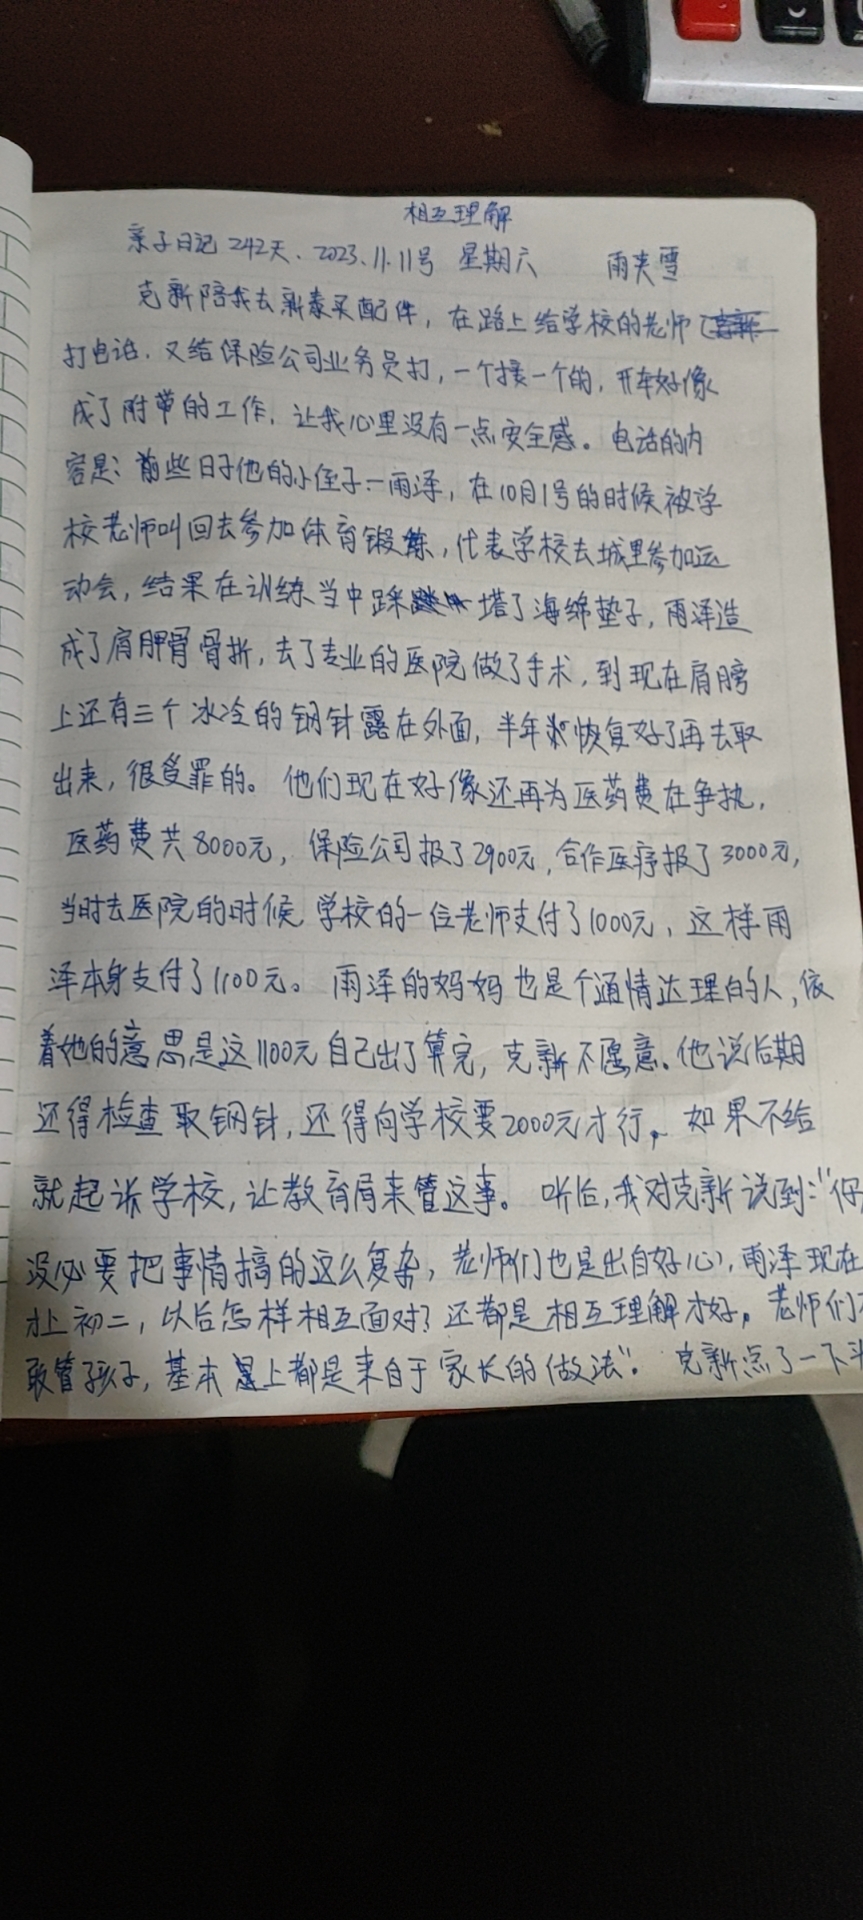 相互理解
亲子日记 242天、2023.11.11号 星期六 雨夹雪
克新陪我去新泰买配件，在路上给学校的老师
打电话，又给保险公司业务员打，一个接一个的，开车好像
成了附带的工作，让我心里没有一点安全感。电话的内
容是：前些日子他的小侄子一雨泽，在10月1号的时候被学
校老师叫回去参加体育锻炼，代表学校去城里参加运
动会，结果在训练当中踩塔了海绵垫子，雨泽造
成了肩胛骨骨折，去了专业的医院做了手术，到现在肩膀
上还有三个冰冷的钢针露在外面，半年恢复好了再去取
出来，很受罪的。他们现在好像还再为医药费在争执，
医药费共8000元，保险公司报了2900元，合作医疗报了3000元，
当时去医院的时候学校的一位老师支付了1000元，这样雨
泽本身支付了1100元。雨泽的妈妈也是个通情达理的人，依
着她的意思是这1100元自己出了算完，克新不愿意。他说后期
还得检查取钢针，还得向学校要2000元才行，如果不给
就起诉学校，让教育局来管这事。听后，我对克新说到："你
没必要把事情搞的这么复杂，老师们也是出自好心，雨泽现在
才上初二，以后怎样相互面对？还都是相互理解才好。老师们不
敢管孩子，基本上都是来自于家长的做法"。克新点了一下头